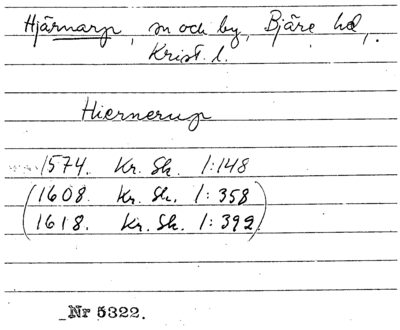 Hjärnarp, sn och by, Bjäre hd,.
Krist. l.
Hiernerup
1574. Kr. Sk. 1:148
(1608. Kr. Sk. 1:358)
(1618. Kr. Sk. 1:392)
Nr 5322.